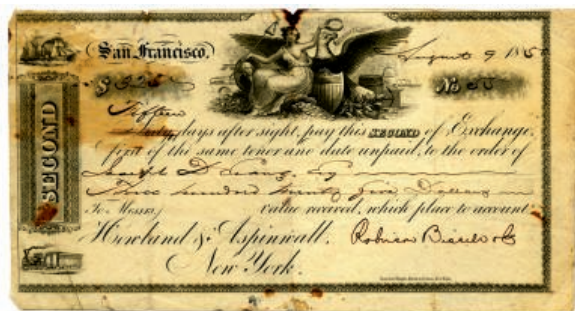 San Francisco. August 9 185
$325
No
SECOND
Fifteen
days after sight, pay this SECOND of Exchange,
first of the same tenor and date unpaid, to the order of
Joseph D
Three hundred twenty five Dollars
To Messrs. value received, which place to account
Howland & Aspinwall. Robinson Bissell & Co
New York.